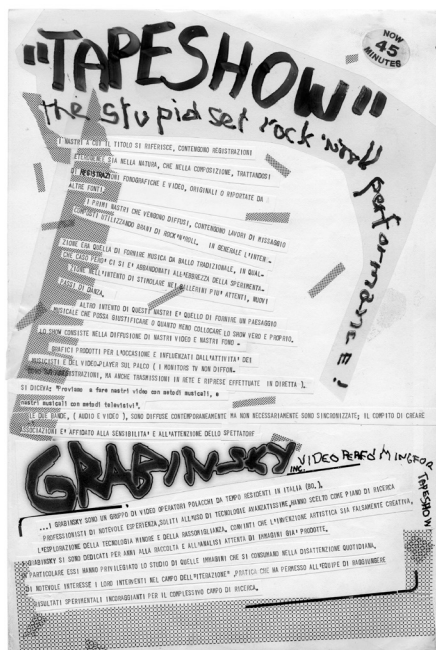 "TAPESHOW"
NOW
45
MINUTES
the stupid set rock 'n'roll performance!
I NASTRI A CUI IL TITOLO SI RIFERISCE, CONTENGONO REGISTRAZIONI
ETEROGENEE SIA NELLA NATURA, CHE NELLA COMPOSIZIONE, TRATTANDOSI
DI REGISTRAZIONI FONOGRAFICHE E VIDEO, ORIGINALI O RIPORTATE DA
ALTRE FONTI.
I PRIMI NASTRI CHE VENGONO DIFFUSI, CONTENGONO LAVORI DI MISSAGGIO
COMPOSTI UTILIZZANDO BRANI DI ROCK'N'ROLL. IN GENERALE L'INTEN-
ZIONE ERA QUELLA DI FORNIRE MUSICA DA BALLO TRADIZIONALE, IN QUAL-
CHE CASO PERO' CI SI E' ABBANDONATI ALL'EBBREZZA DELLA SPERIMENTA-
ZIONE NELL'INTENTO DI STIMOLARE NEI BALLERINI PIU' ATTENTI, NUOVI
PASSI DI DANZA.
ALTRO INTENTO DI QUESTI NASTRI E' QUELLO DI FORNIRE UN PAESAGGIO
MUSICALE CHE POSSA GIUSTIFICARE O QUANTO MENO COLLOCARE LO SHOW VERO E PROPRIO.
LO SHOW CONSISTE NELLA DIFFUSIONE DI NASTRI VIDEO E NASTRI FONO -
GRAFICI PRODOTTI PER L'OCCASIONE E INFLUENZATI DALL'ATTIVITA' DEI
MUSICISTI E DEL VIDEO-PLAYER SUL PALCO ( I MONITORS TV NON DIFFON-
REGISTRAZIONI, MA ANCHE TRASMISSIONI IN RETE E RIPRESE EFFETTUATE IN DIRETTA ).
SI DICEVA: "Proviamo a fare nastri video con metodi musicali, a
nastri musicali con metodi televisivi".
LE DUE BANDE, ( AUDIO E VIDEO ), SONO DIFFUSE CONTEMPORANEAMENTE MA NON NECESSARIAMENTE SONO SINCRONIZZATE; IL COMPITO DI CREARE
ASSOCIAZIONI E' AFFIDATO ALLA SENSIBILITA' E ALL'ATTENZIONE DELLO SPETTATORE
GRABINSKY
INC. VIDEO PERFORMING FOR
TAPESHOW.
...I GRABINSKY SONO UN GRUPPO DI VIDEO OPERATORI POLACCHI DA TEMPO RESIDENTI IN ITALIA (BO.).
PROFESSIONISTI DI NOTEVOLE ESPERIENZA, SOLITI ALL'USO DI TECNOLOGIE AVANZATISSIME, HANNO SCELTO COME PIANO DI RICERCA
L'ESPLORAZIONE DELLA TECNOLOGIA MINORE E DELLA RASSOMIGLIANZA. CONVINTI CHE L'INVENZIONE ARTISTICA SIA FALSAMENTE CREATIVA,
I GRABINSKY SI SONO DEDICATI PER ANNI ALLA RACCOLTA E ALL'ANALISI ATTENTA DI IMMAGINI GIA' PRODOTTE.
IN PARTICOLARE ESSI HANNO PRIVILEGIATO LO STUDIO DI QUELLE IMMAGINI CHE SI CONSUMANO NELLA DISATTENZIONE QUOTIDIANA.
DI NOTEVOLE INTERESSE I LORO INTERVENTI NEL CAMPO DELL'"ITERAZIONE", PRATICA CHE HA PERMESSO ALL'EQUIPE DI RAGGIUNGERE
RISULTATI SPERIMENTALI INCORAGGIANTI PER IL COMPLESSIVO CAMPO DI RICERCA.